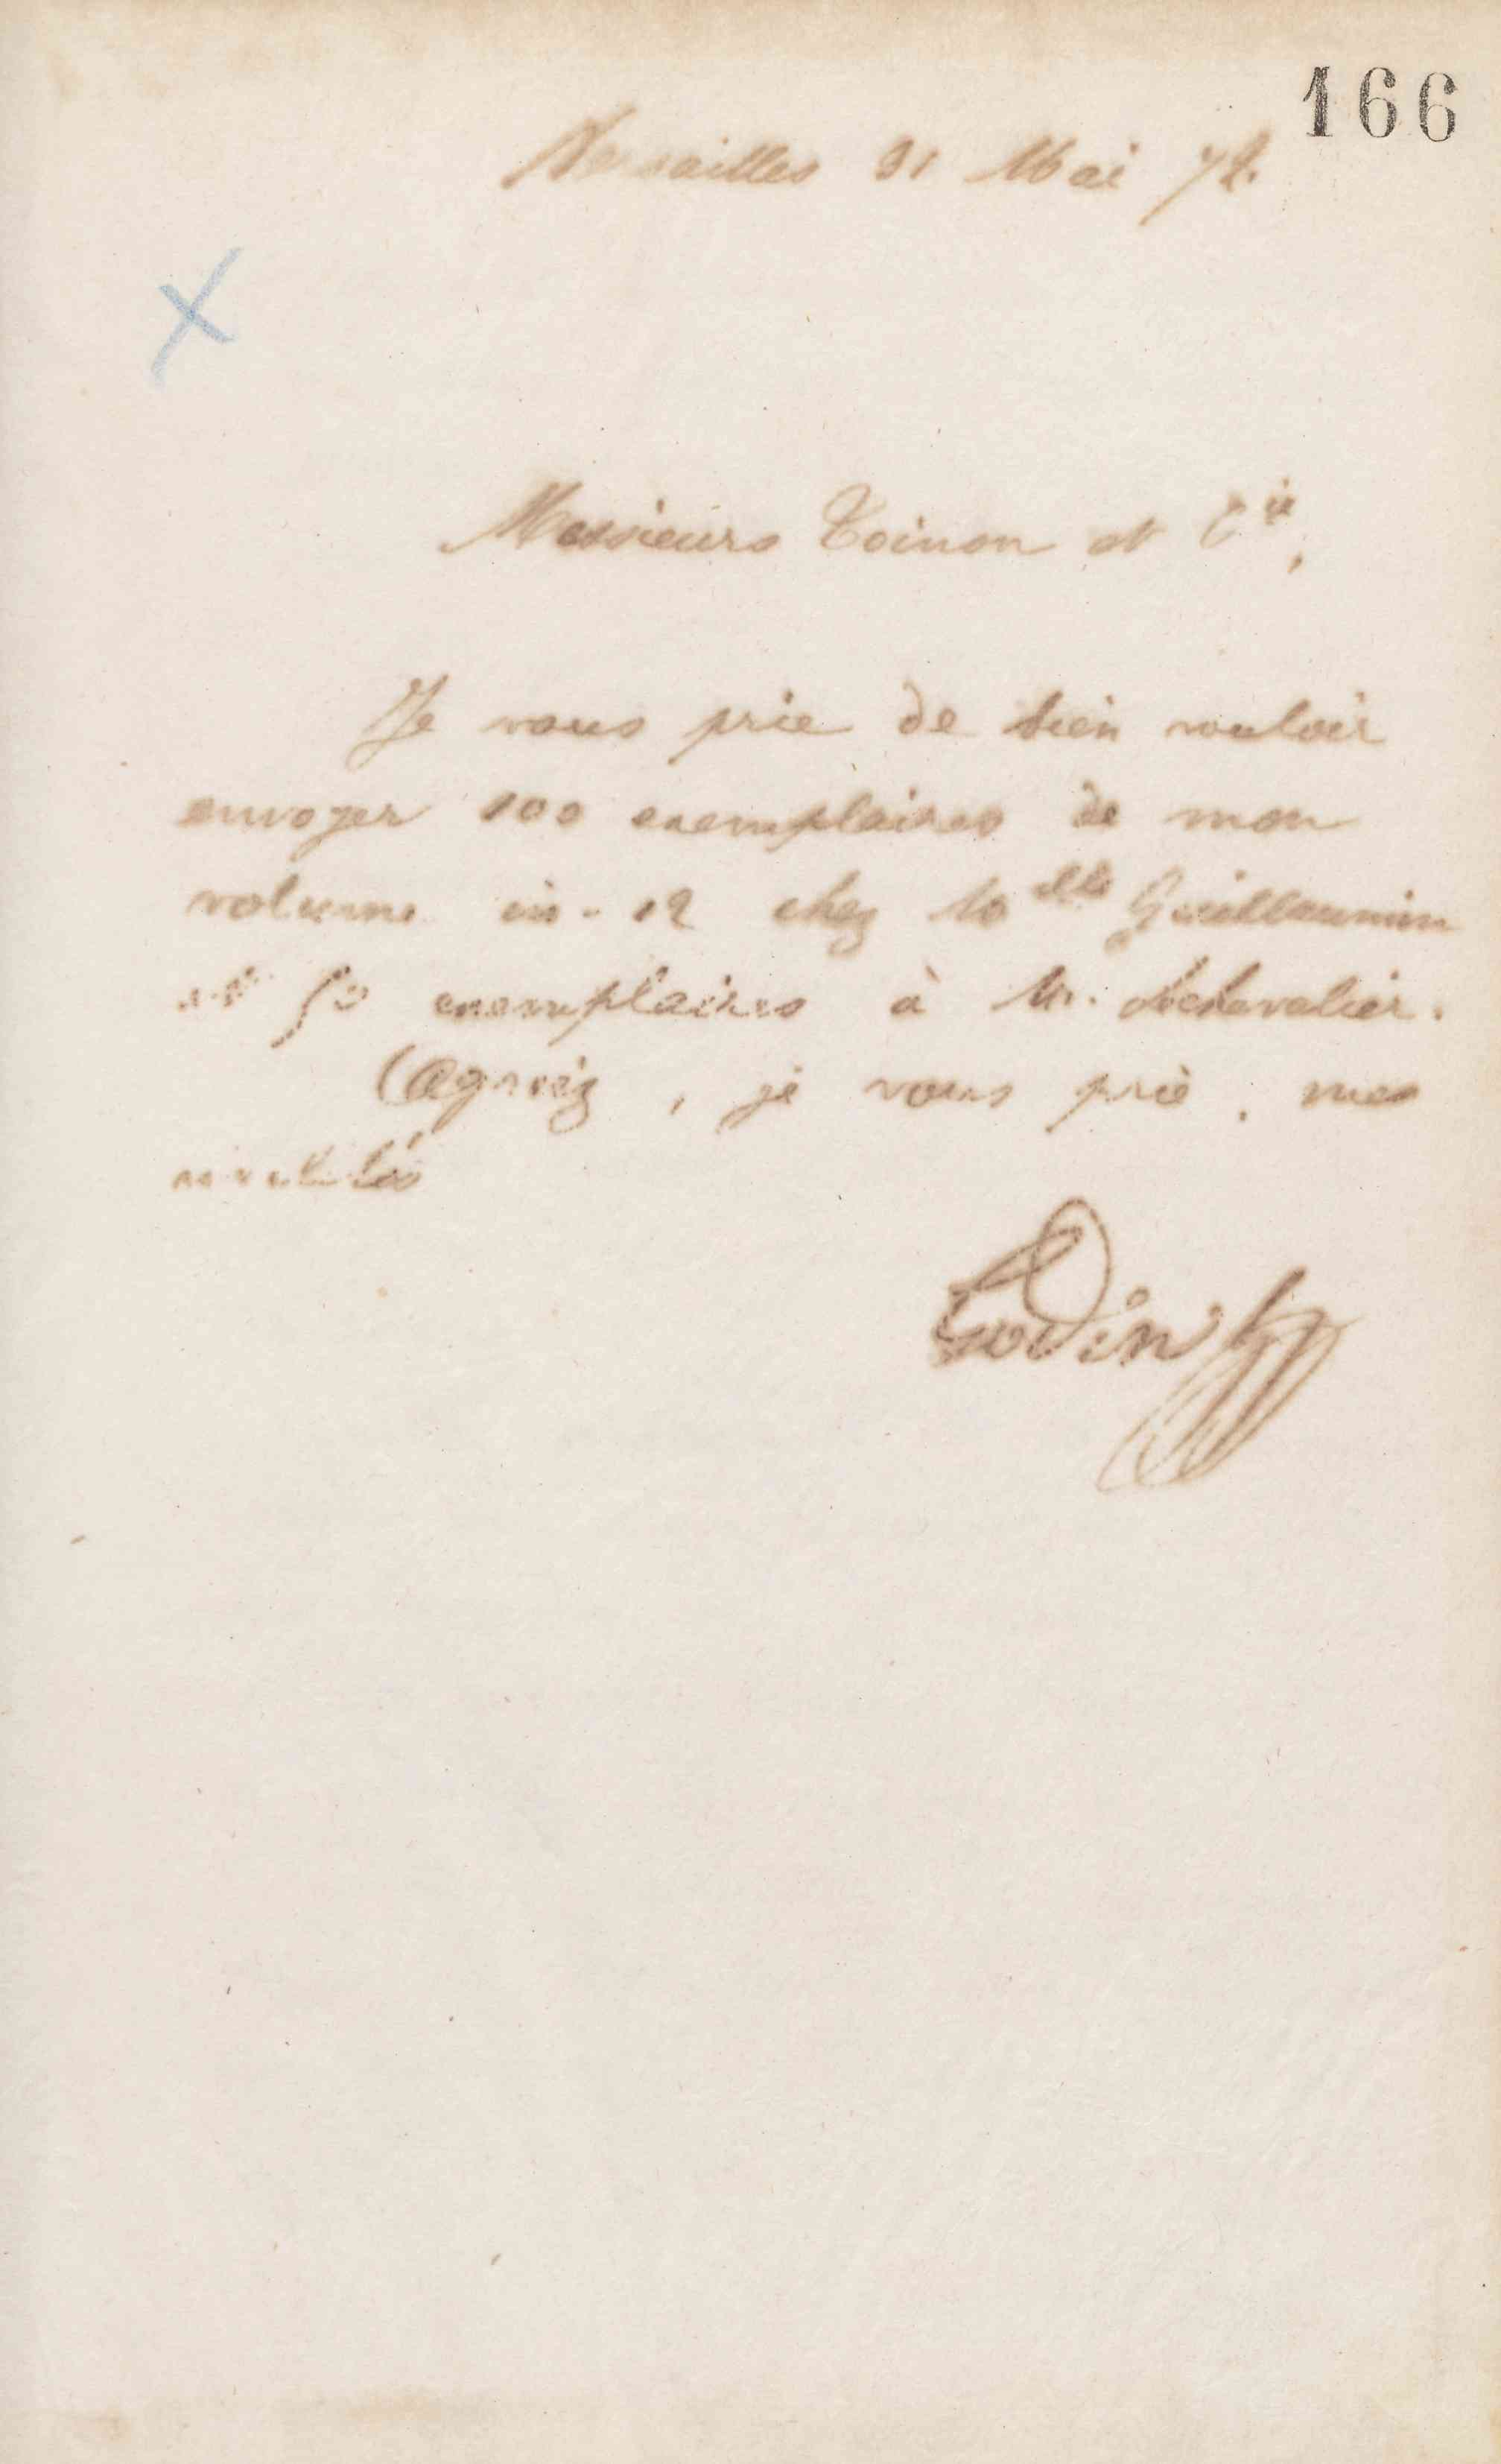 166
Versailles 31 Mai 74.
Messieurs Toinon et Cie,
Je vous prie de bien vouloir
envoyer 100 exemplaires de mon
volume in-12 chez Melle Guillaumin
et 50 exemplaires à M. Lechevalier.
Agréez, je vous prie, mes
civilités
Godin